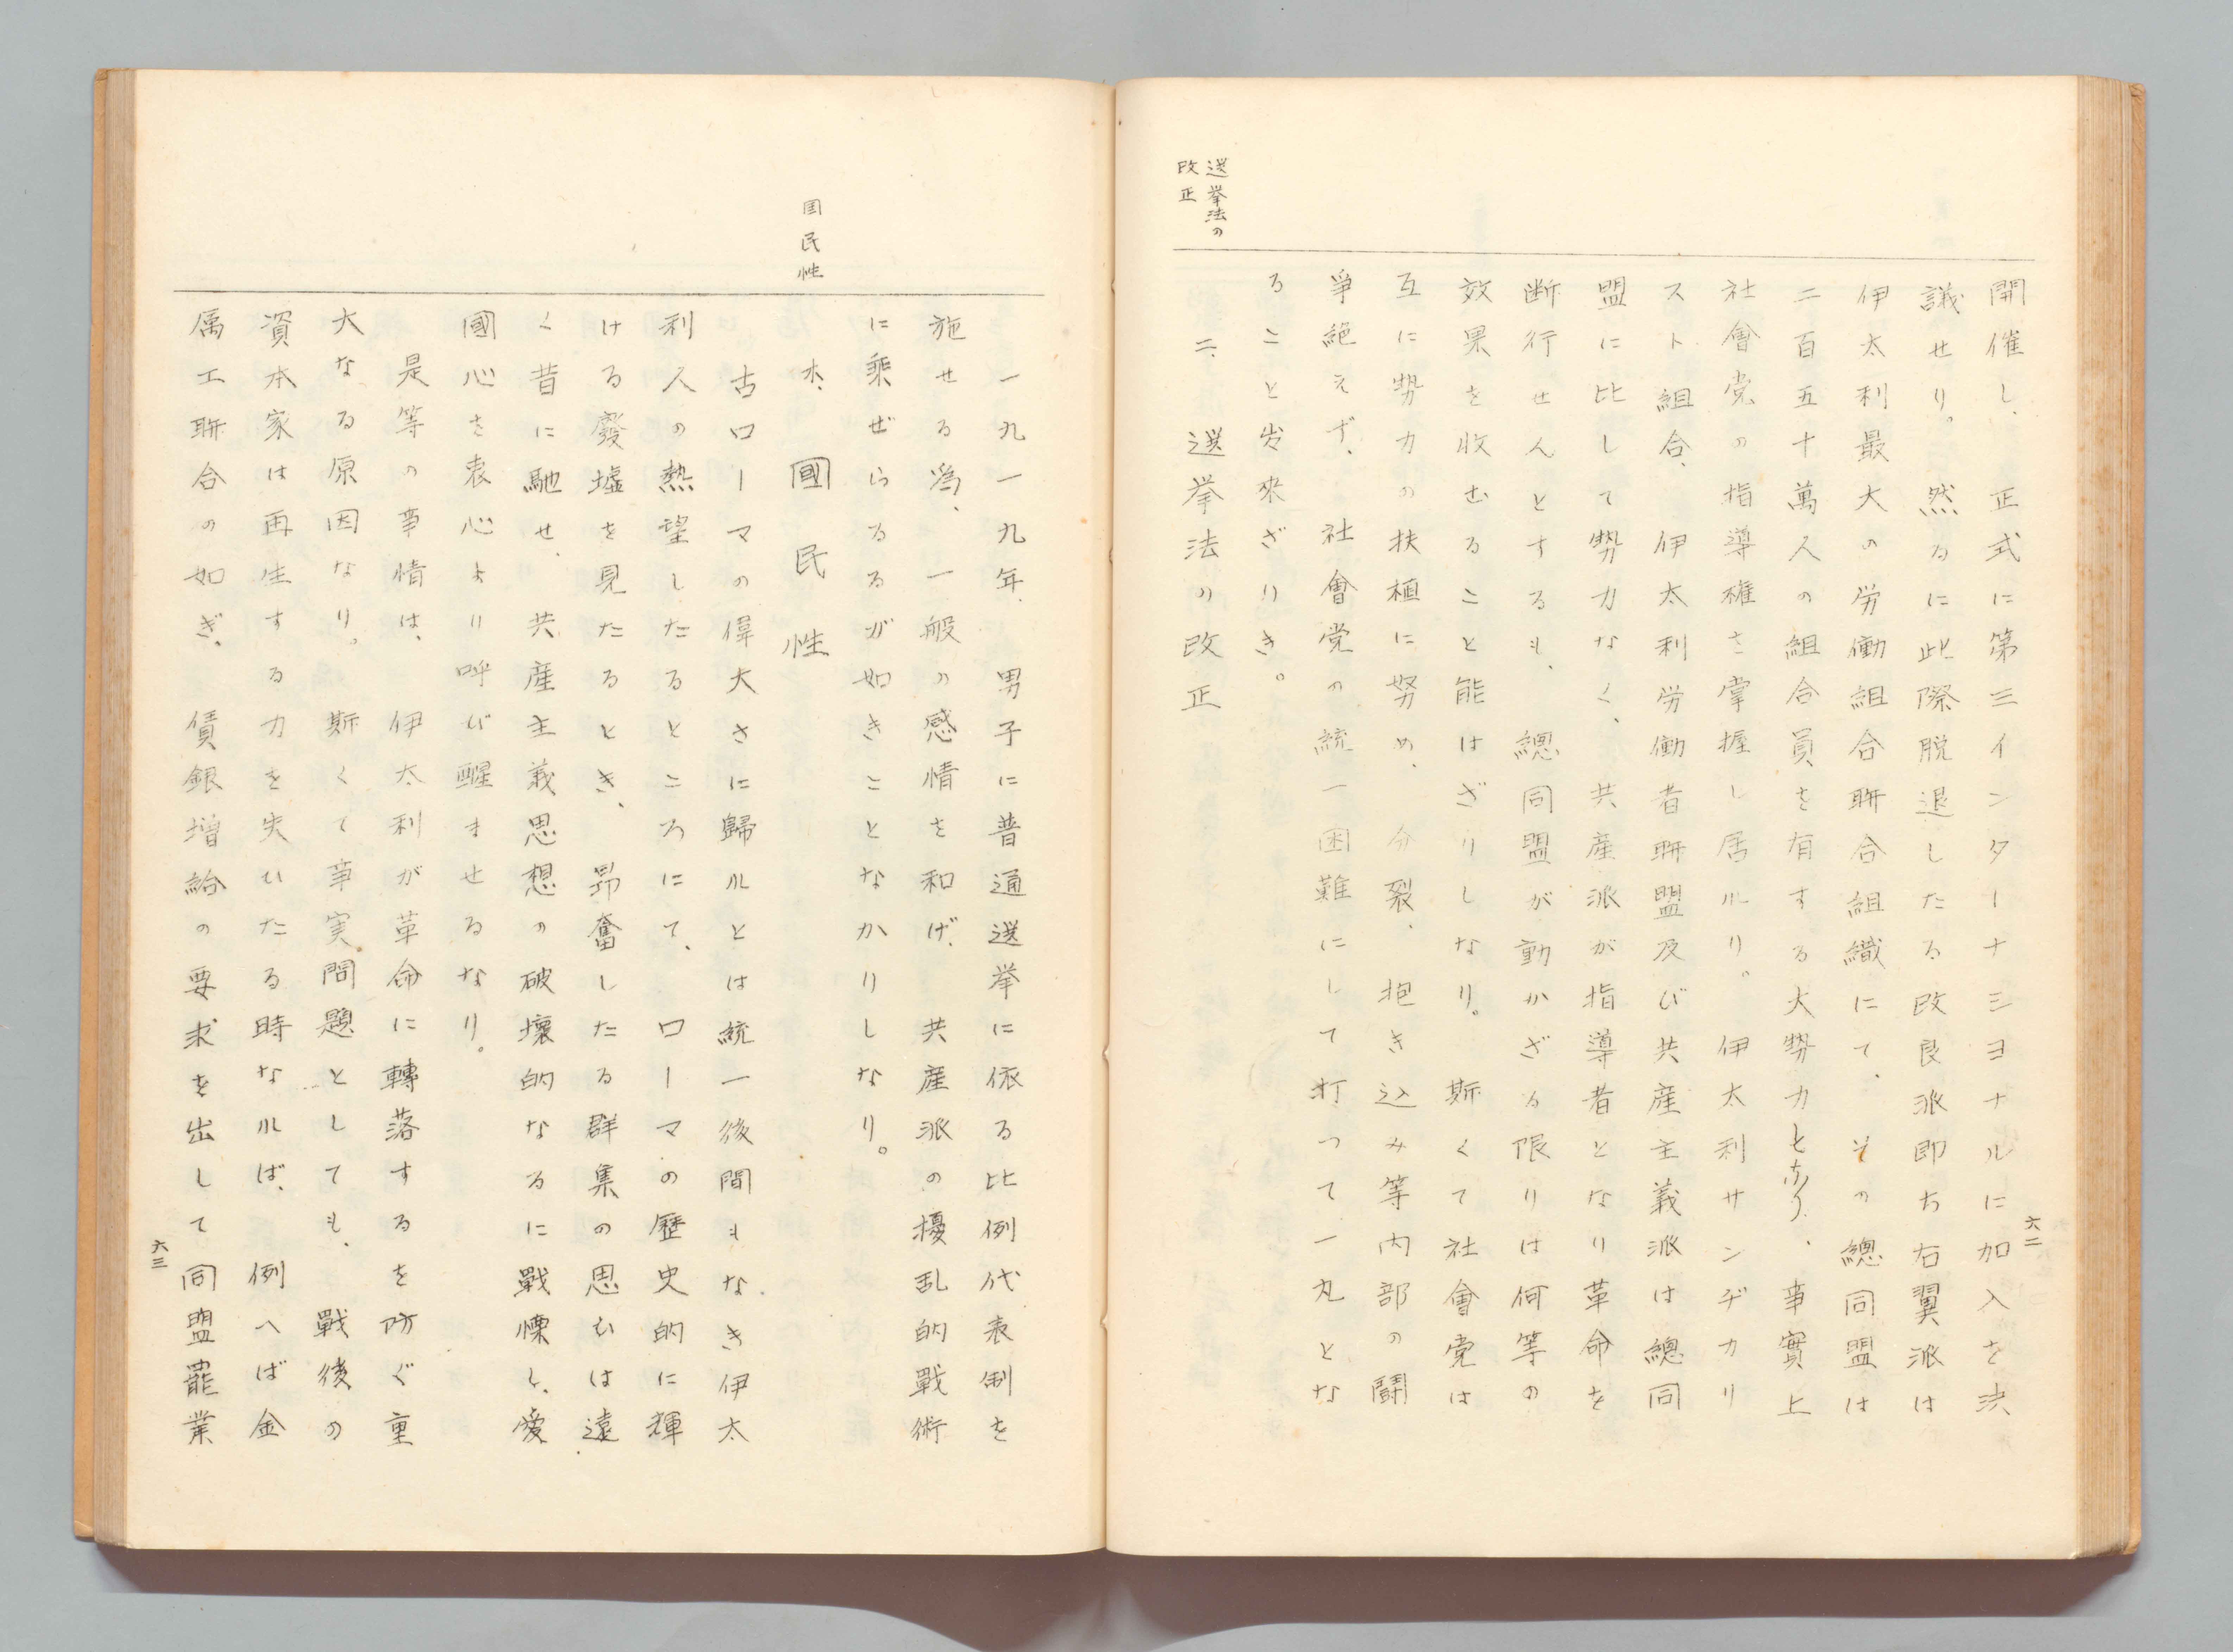 六二
開催し、正式に第三インターナシヨナルに加入を決
議せり。然るに此際脱退したる改良派即ち右翼派は
伊太利最大の労働組合聯合組織にて、その總同盟は
二百五十萬人の組合員を有する大勢力となり、事實上
社會党の指導権を掌握し居ルリ。伊太利サンヂカリ
スト組合、伊太利労働者聯盟及び共産主義派は總同
盟に比して勢力なく、共産派が指導者となり革命を
断行せんとするも、總同盟が動かざる限りは何等の
效果を收むること能はざりしなり。斯くて社會党は
互に勢力の扶植に努め、分裂、抱き込み等内部の鬪
爭絶えず、社會党の統一困難にして打つて一丸とな
ること出來ざりき。
選挙法の
改正
二、選挙法の改正
一九一九年、男子に普通選挙に依る比例代表制を
施せる爲、一般の感情を和げ、共産派の擾乱的戰術
に乘ぜらるるが如きことなかりしなり。
国民性
ホ、國民性
古ローマの偉大さに歸ルとは統一後間もなき伊太
利人の熱望したるところにて、ローマの歷史的に輝
ける廢墟を見たるとき、昂奮したる群集の思ひは遠
く昔に馳せ、共産主義思想の破壞的なるに戰慄し、愛
國心を衷心より呼び醒ませるなり。
是等の事情は、伊太利が革命に轉落するを防ぐ重
大なる原因なり。斯くて事実問題としても、戰後の
資本家は再生する力を失ひたる時なルば、例へば金
属工聯合の如ぎ、賃銀増給の要求を出して同盟罷業
六三